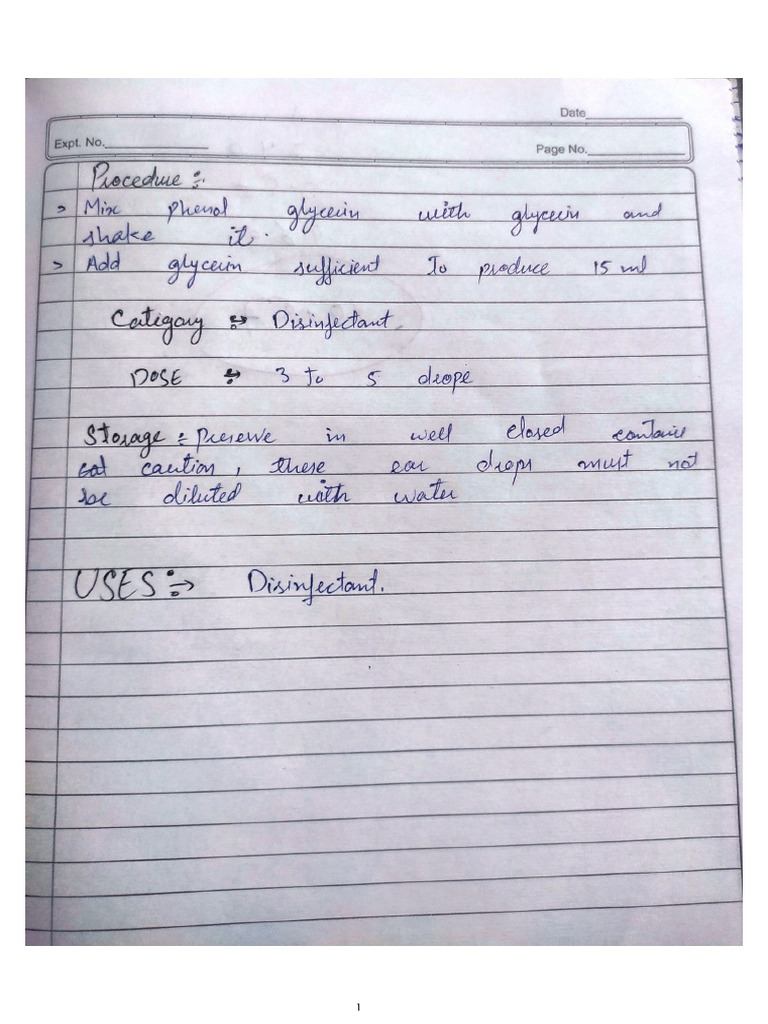 Date
Expt. No.
Page No.
Procedure :-
> Mix phenol glycerin with glycerin and
shake it.
> Add glycerin sufficient To produce 15 ml
Catigary :-> Disinfectant
DOSE :-> 3 to 5 drope
Storage :- Preserve in well closed contairie
cat caution, these ear drops must not
be diluted with water
USES :-> Disinfectant.
1